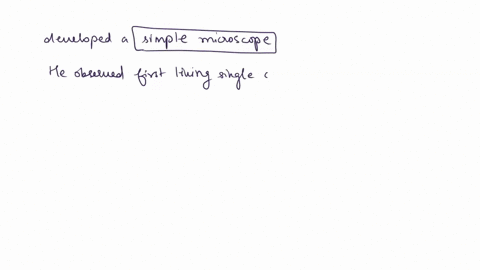 developed a simple microscope
He observed first living single c